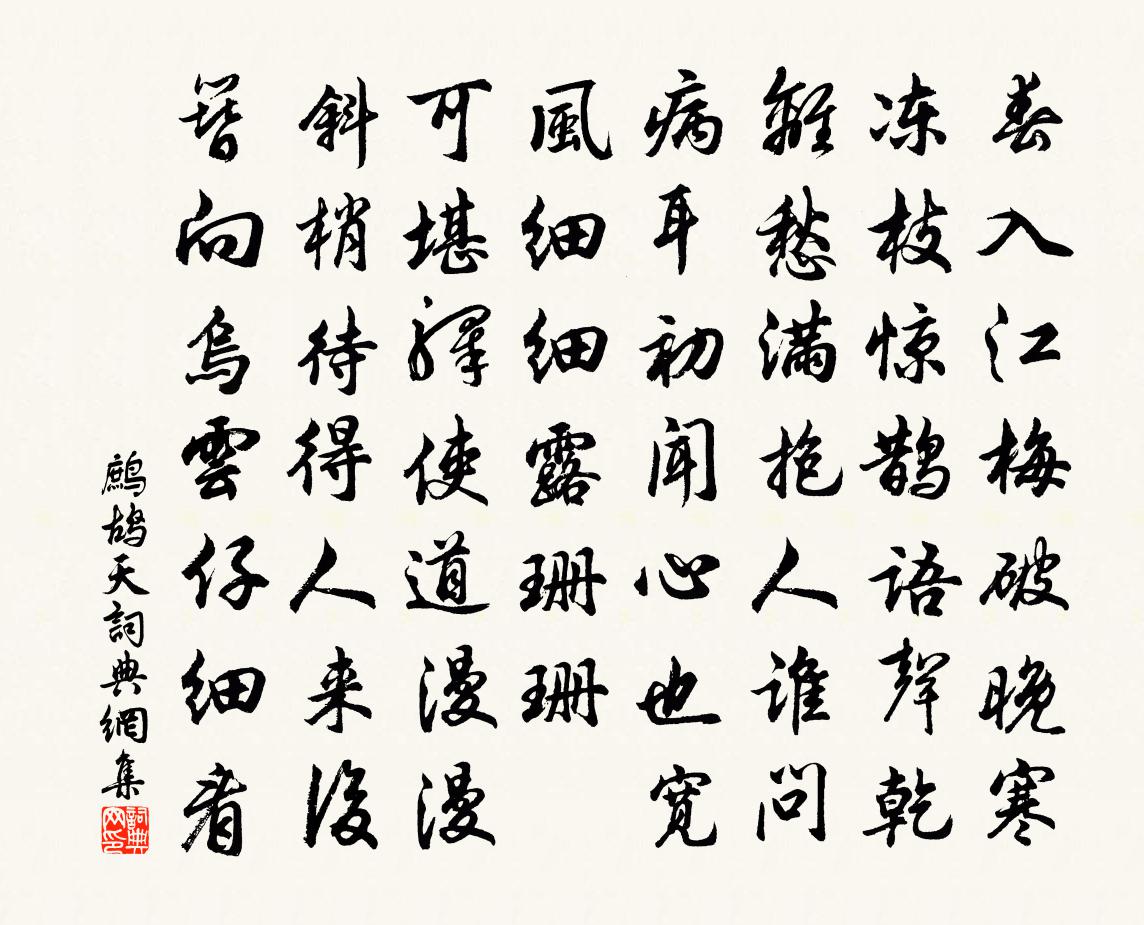 春入江梅破晚寒
冻枝惊鹊语聲乾
離愁满抱人谁问
病耳初闻心也宽
風细细露珊珊
可堪驛使道漫漫
斜梢待得人来後
簪向烏雲仔细看
鷓鴣天詞典網集
詞典网印